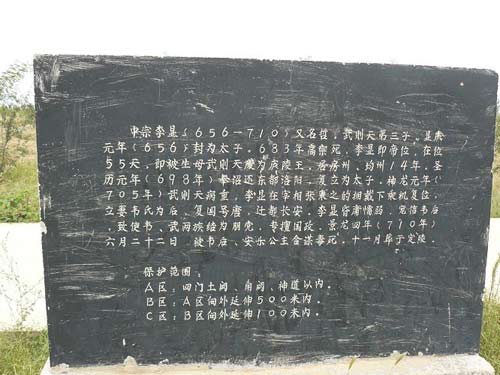 中宗李显（656－710）又名哲，武则天第三子。显庆
元年（656）封为太子。683年高宗死，李显即帝位，在位
55天，即被生母武则天废为庐陵王，居房州、均州14年，圣
历元年（698年）奉诏还东都洛阳，复立为太子，神龙元年（
705年）武则天病重，李显在宰相张柬之的拥戴下乘机复位，
立妻韦氏为后，复国号唐，迁都长安，李显昏庸懦弱，宠信韦后
，致使韦、武两族结为朋党，专擅国政，景龙四年（710年）
六月二十二日 被韦后、安乐公主合谋毒死，十一月葬于定陵。
保护范围：
A区：四门土阙、角阙、神道以内。
B区：A区向外延伸500米内。
C区：B区向外延伸100米内。